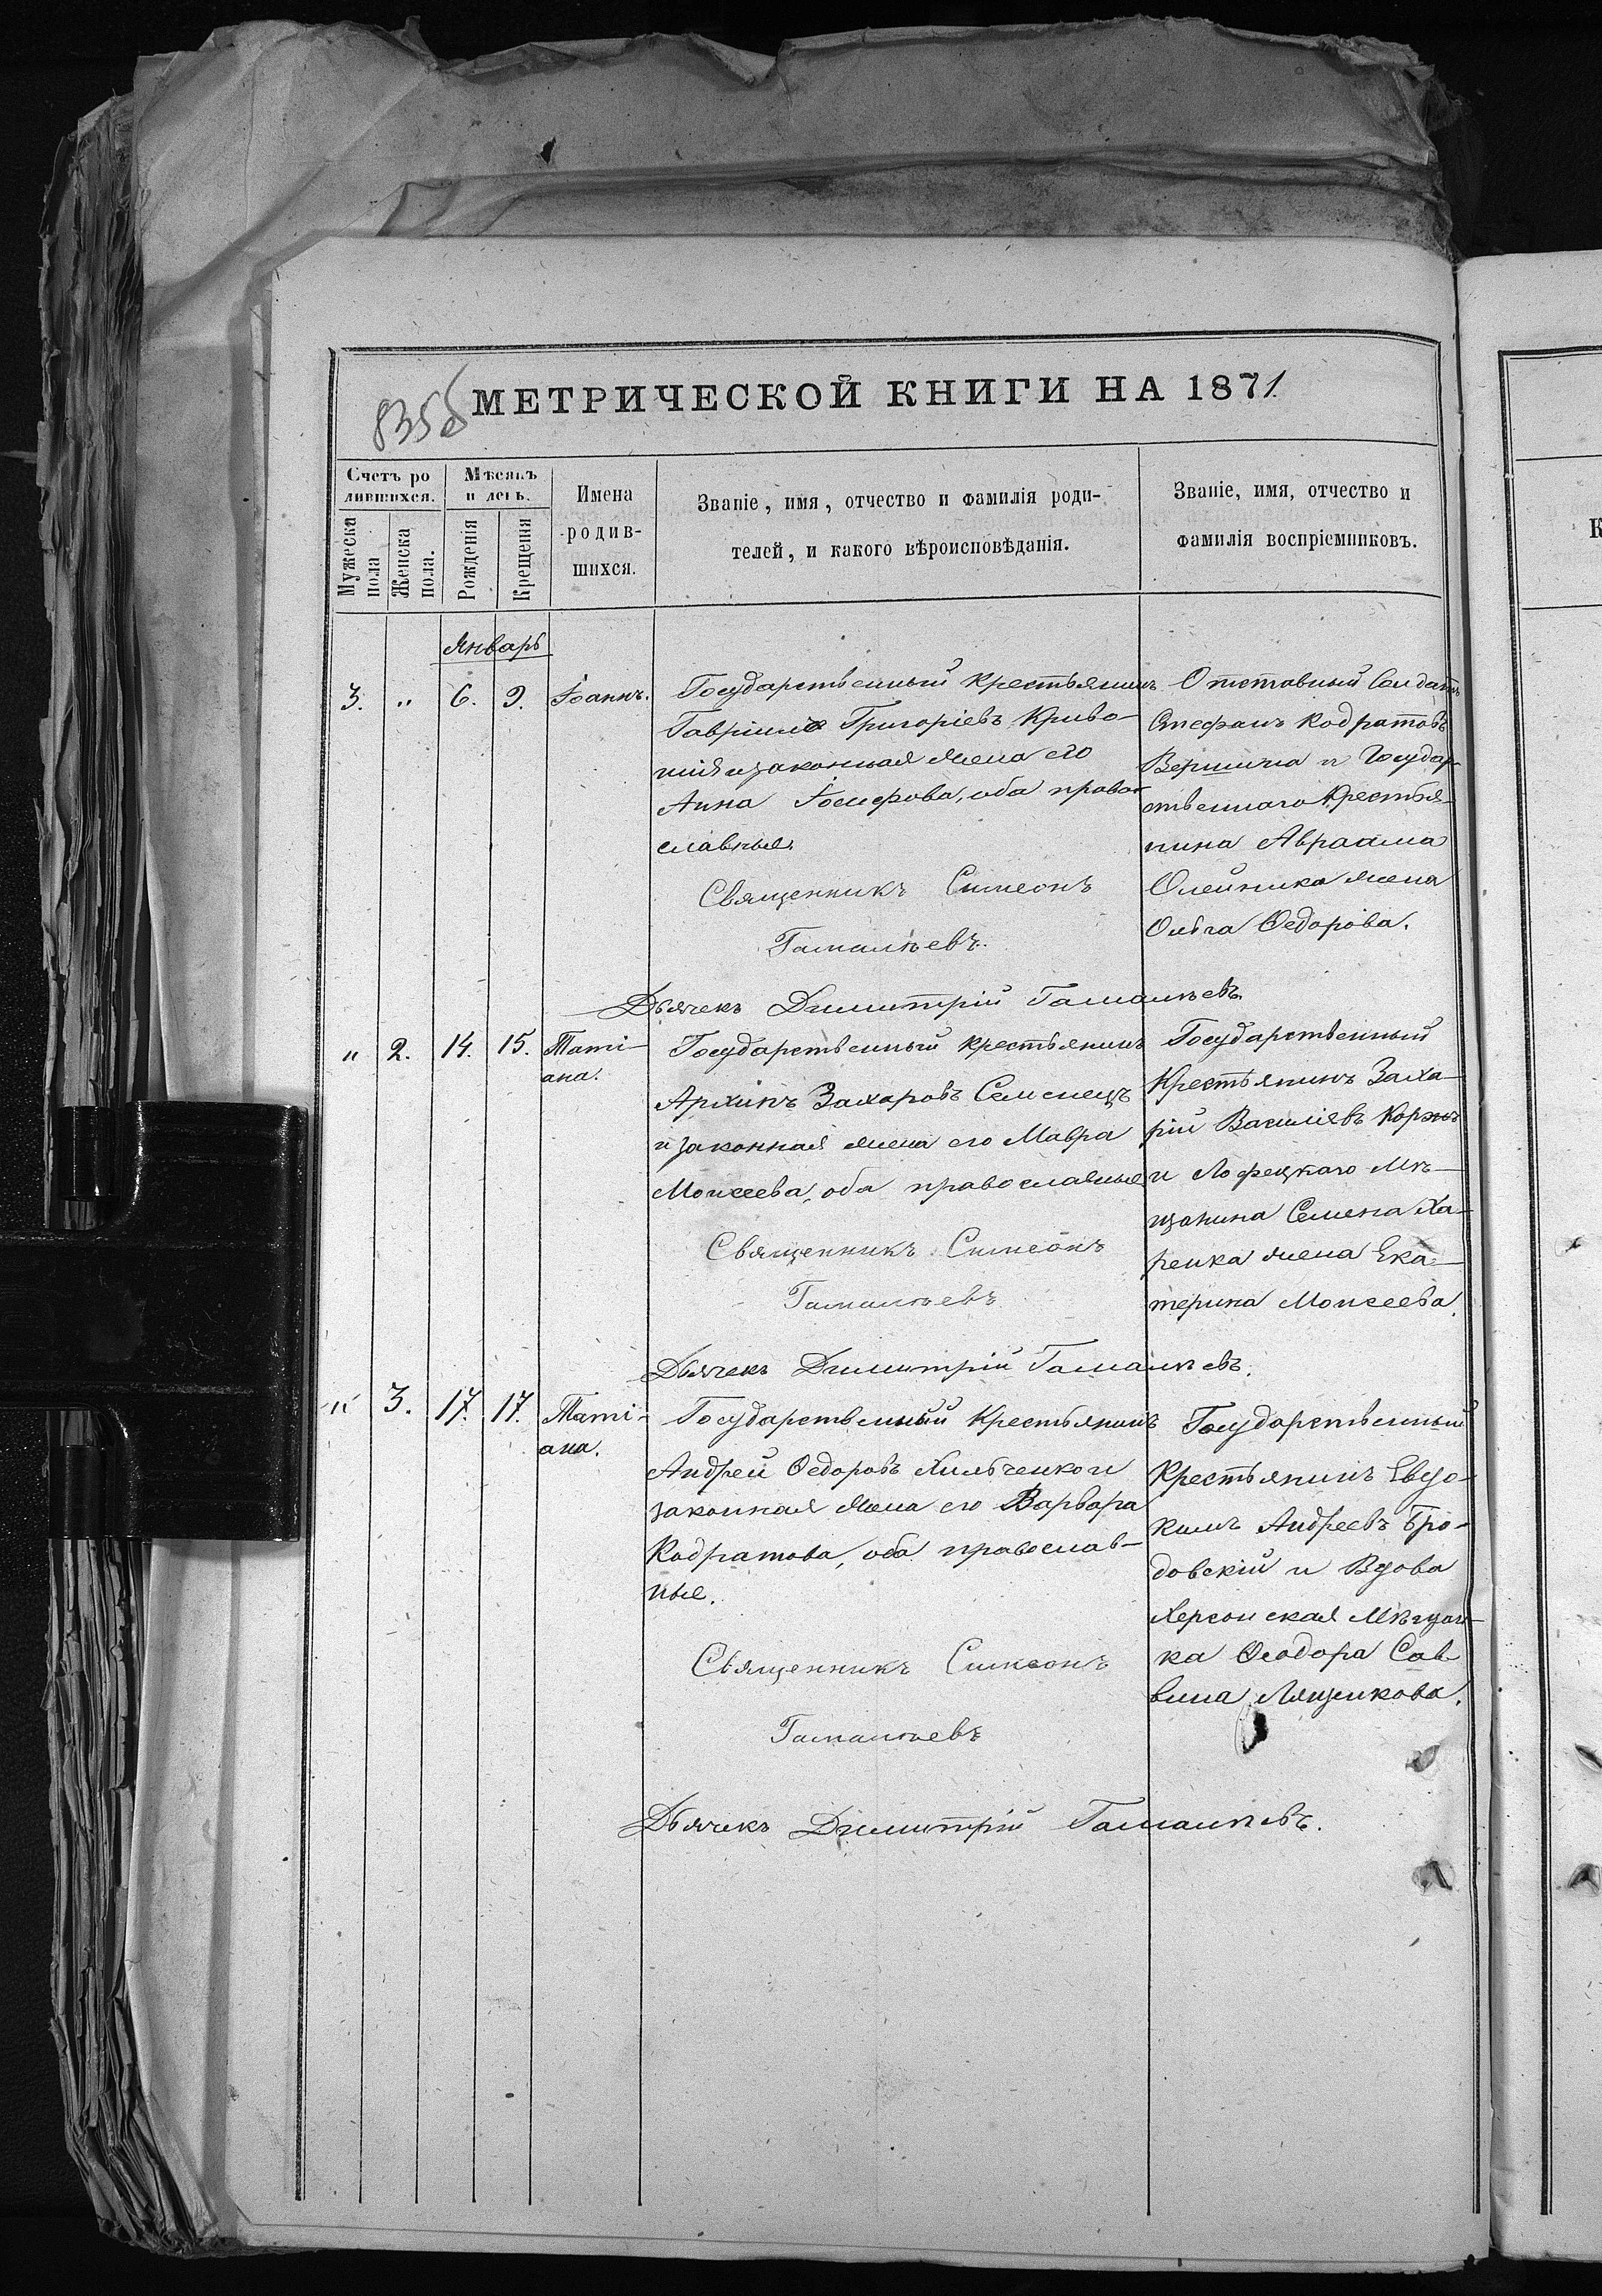 835б
МЕТРИЧЕСКОЙ КНИГИ НА 1871.
Счетъ ро
дившихся.
Мѣсяцъ
и день.
Мужеска
пола
Женска
пола.
Рожденія
Крещенія
Имена
родив-
шихся.
Званіе, имя, отчество и фамилія роди-
телей, и какого вѣроисповѣданія.
Званіе, имя, отчество и
фамилія воспріемниковъ.
Январь
3. " 6. 9. Іоаннъ.
Государственный крестьянинъ
Гавріилъ Григоріевъ Криво-
шія и законная жена его
Анна Іосифова, оба право-
славные.
Священникъ Симеонъ
Гамалѣевъ.
Дьячекъ Димитрій Гамалѣевъ.
Отставный Солдатъ
Стефанъ Кодратовъ
Вершина и Государ-
ственнаго Крестья-
нина Авраама
Олейника жена
Ольга Ѳедорова.
" 2. 14. 15. Таті-
ана.
Государственный крестьянинъ
Архипъ Захаровъ Семенецъ
и законная жена его Мавра
Моисеева, оба православные
Священникъ Симеонъ
Гамалѣевъ
Дьячекъ Димитрій Гамалѣевъ.
Государственный
Крестьянинъ Заха-
рій Василіевъ Коржъ
и Мѣ-
щанина Семена Ха-
ренка жена Ека-
терина Моисеева.
" 3. 17. 17. Таті-
ана.
Государственный Крестьянинъ
Андрей Ѳедоровъ Хильченко и
законная жена его Варвара
Кодратова, оба православ-
ные.
Священникъ Симеонъ
Гамалѣевъ
Дьячекъ Димитрій Гамалѣевъ.
Государственный
Крестьянинъ Евдо-
кимъ Андреевъ Бро-
довскій и Вдова
Херсонская Мѣщан-
ка Ѳеодора Сав-
вина Лященкова.